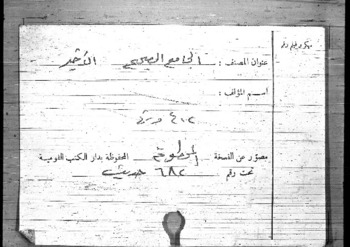 عنوان المصنف : الجامع الصحيح الأخير
اسم المؤلف :
٤١٢ ورقة
مصور عن النسخة المخطوطة المحفوظة بدار الكتب القومية
تحت رقم ٦٨٢ حديث